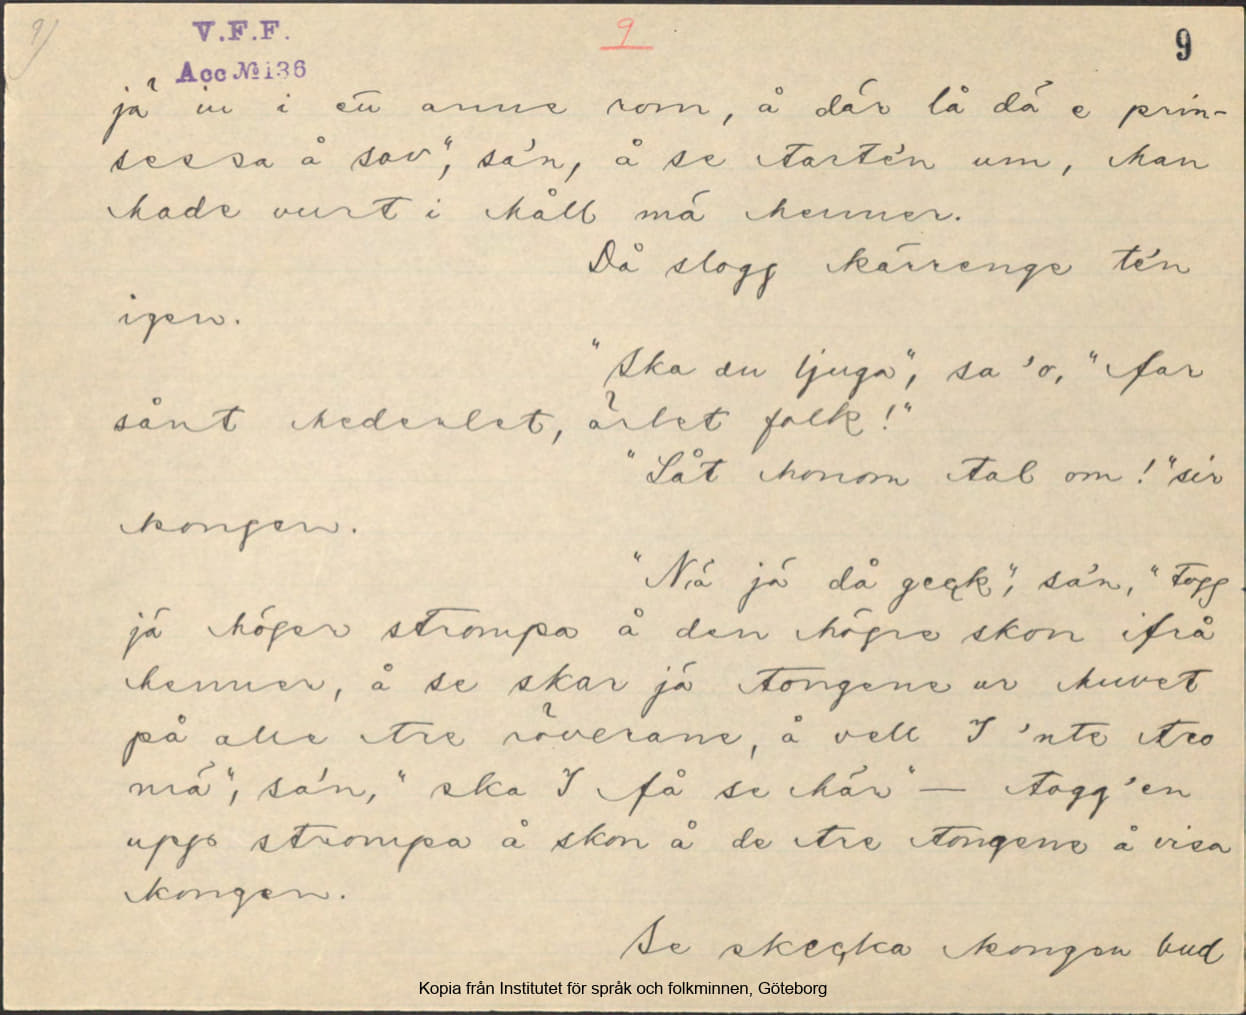 9)
V.F.F.
Acc № 136
9
9
já in i en anne rom, å där lå dá e prin-
sessa å sov", sá'n, å se tarté'n um, han
hade vurt i håll má henner.
Då slogg kärrenge té'n
igen.
"Ska du ljuga", sa 'o, "far
sånt hederlet, ärlet folk!"
"Låt honom tal om!" sir
kongen.
"Nä já då geck", sá'n, "togg
já höger strompa å den högre skon ifrå
henner, å se skar já tongene ur huvet
på alle tre röverane, å vell I 'nte tro
má", sá'n, "ska I få se här" — togg 'en
upp strompa å skon å de tre tongene å visa
kongen.
Se skecka kongen bud
Kopia från Institutet för språk och folkminnen, Göteborg